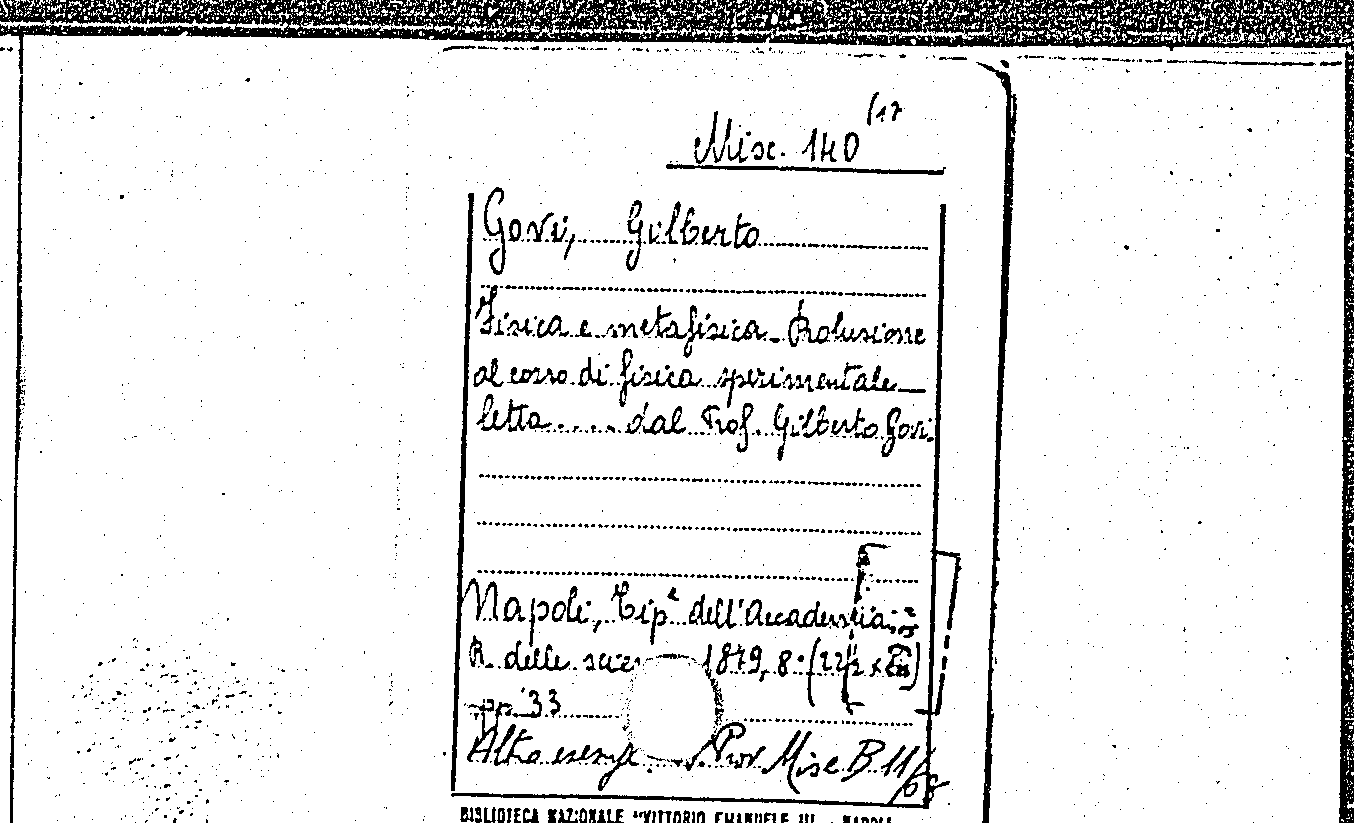 Misc. 140 (17
Govi, Gilberto
Fisica e metafisica. Prolusione
al corso di fisica sperimentale
letta.... dal Prof. Gilberto Govi.
Napoli, Tip.ª dell'Accademia
R. delle scien 1879, 8° (22½ x
pp. 33
Altro esemp. Prov. Misc B 11/68
BIBLIOTECA NAZIONALE "VITTORIO EMANUELE III - NAPOLI